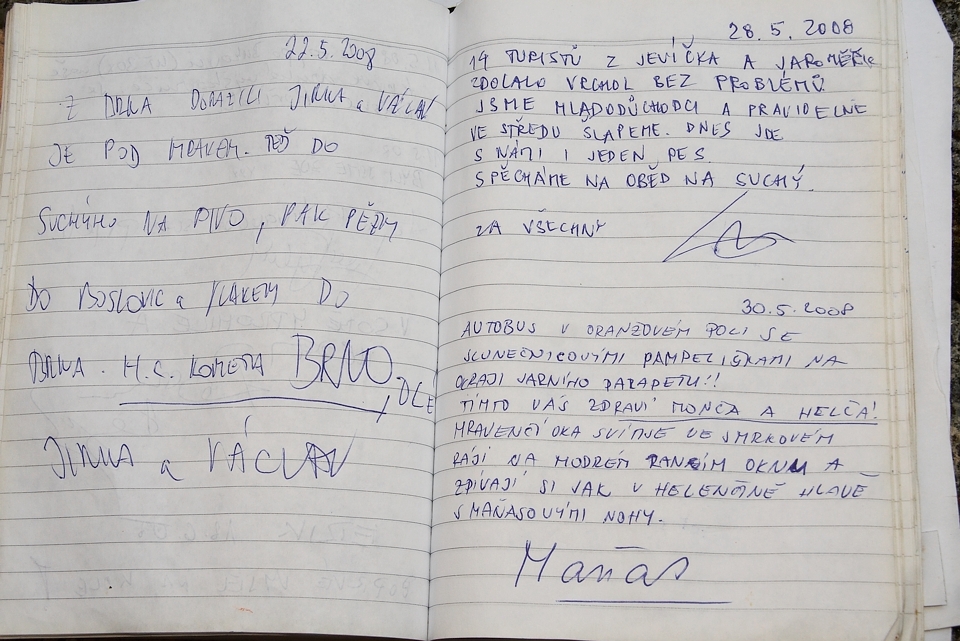 22.5.2008
Z BRNA DORAZILI JIRKA a VÁCLAV
JE POD MRAKEM. TEĎ DO
SUCHÝHO NA PIVO, PAK PĚŽKY
DO BOSKOVIC a VLAKEM DO
BRNA. H.C. KOMETA BRNO, OLÉ
JIRKA a VÁCLAV
28.5.2008
19 TURISTŮ Z JEVÍČKA A JAROMĚŘIC
ZDOLALO VRCHOL BEZ PROBLÉMŮ.
JSME MLADODŮCHODCI A PRAVIDELNĚ
VE STŘEDU ŠLAPEME. DNES JDE
S NÁMI I JEDEN PES.
SPĚCHÁME NA OBĚD NA SUCHÝ.
ZA VŠECHNY
30.5.2008
AUTOBUS V ORANŽOVÉM POLI SE
SLUNEČNICOVÝMI PAMPELIŠKAMI NA
OKRAJI JARNÍHO PARAPETU!!
TÍMTO VÁS ZDRAVÍ MONČA A HELČA!
MRAVENČÍ OKA SVÍTÍ VE SMRKOVÉM
RÁJI NA MODRÉM RANNÍM OKNU A
ZPÍVAJÍ SI JAK V HELENČINĚ HLAVĚ
S MAŇASOVÝMI NOHY.
Maňas